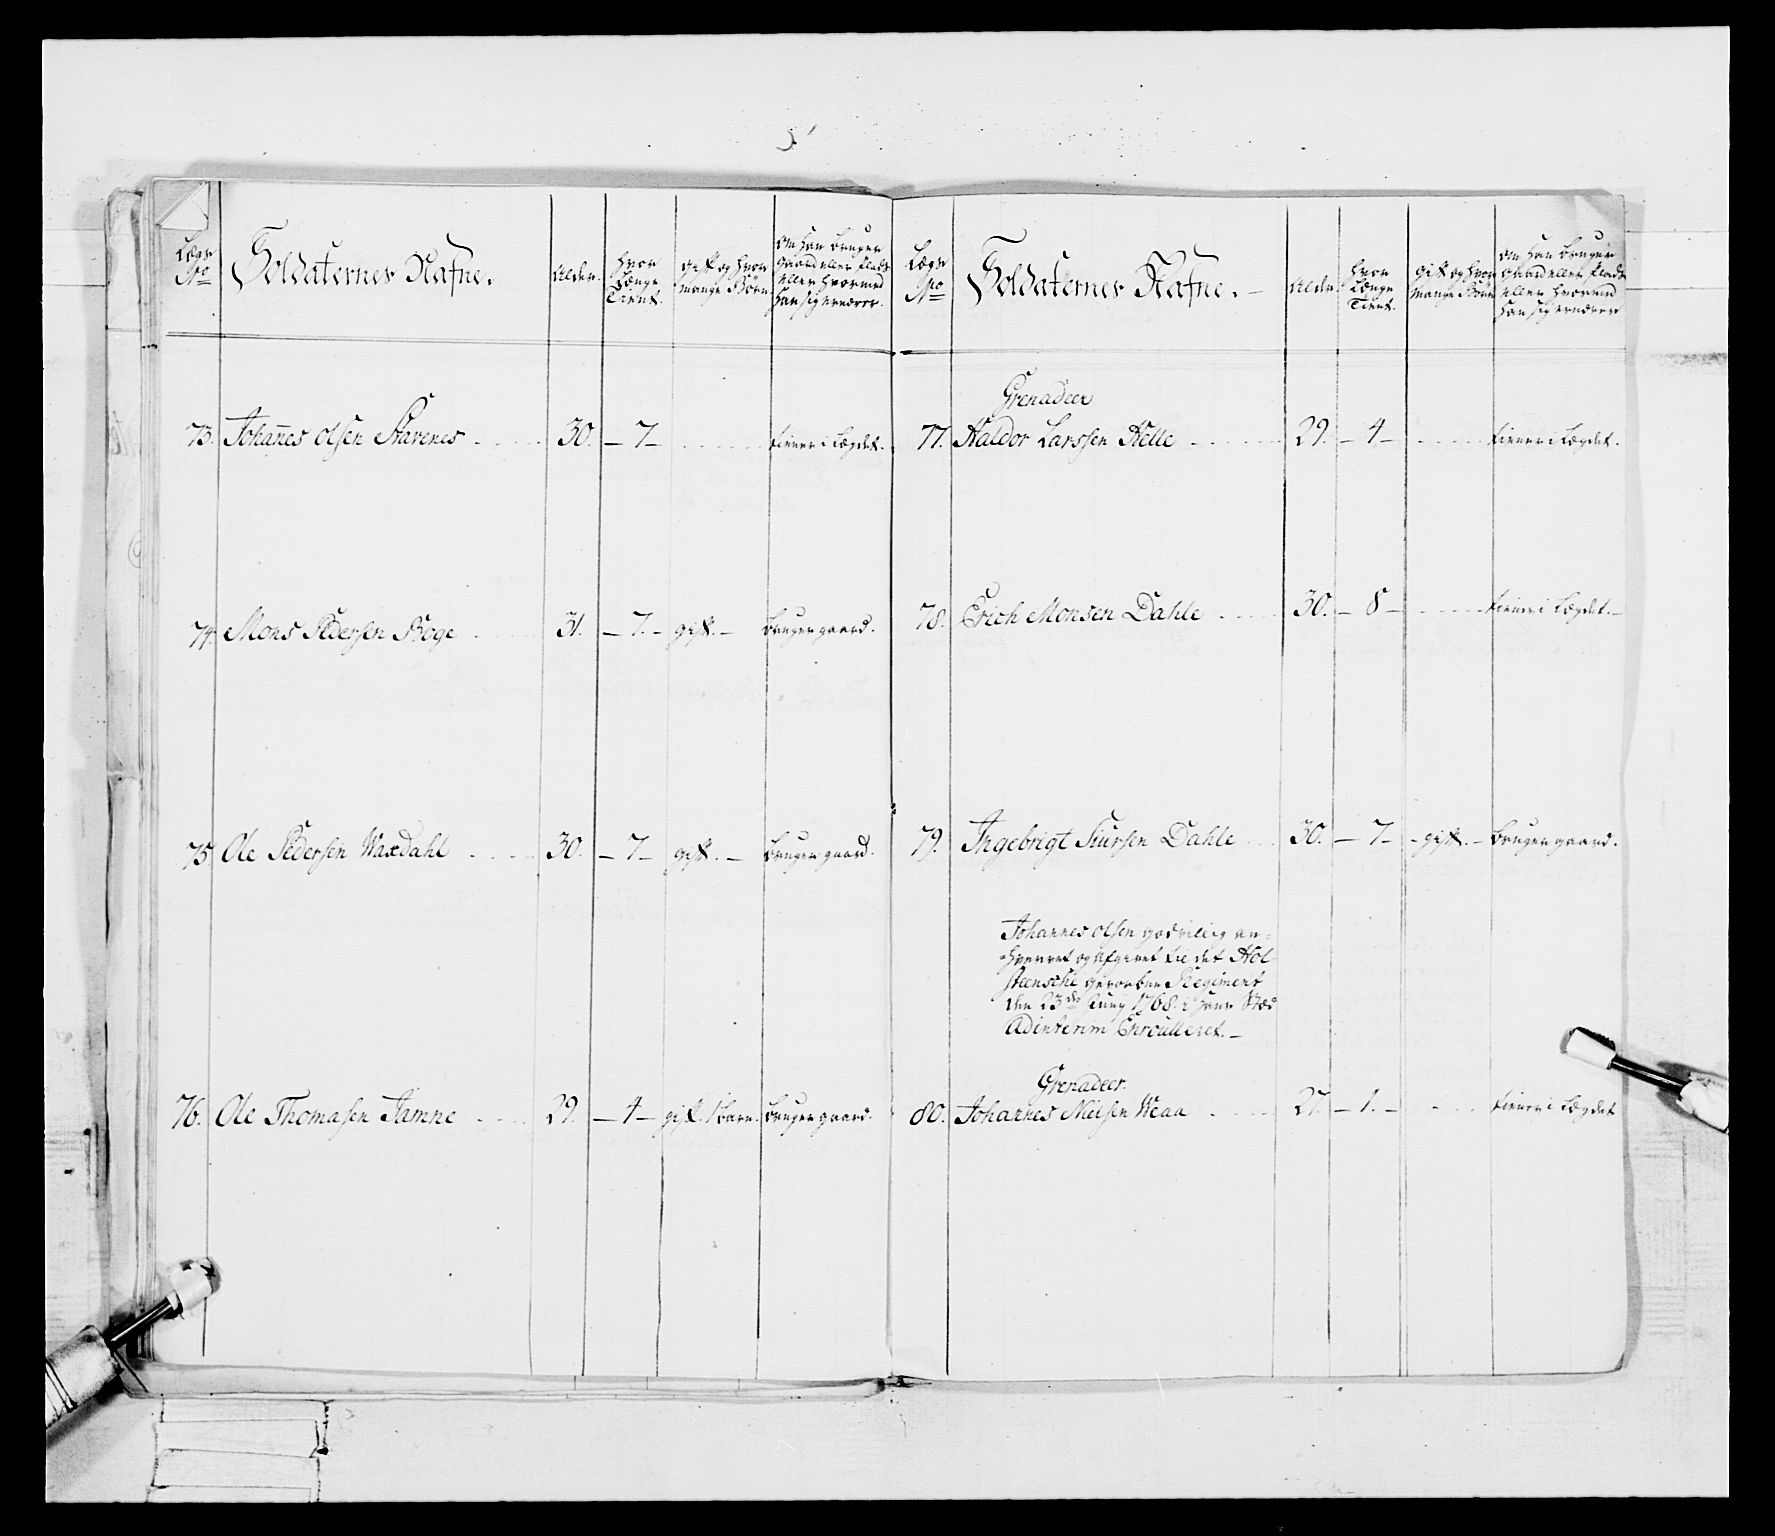 Lægs No
Soldaternes Nafne.
Alder.
hvor Længe Tient.
gift og hvor mange Børn
Om han bruger gaard eller Plads eller hvormed han sig ernærer.
73. Johannes Olsen Stavenes 30. 7 tiener i Lægdet.
74. Mons Pedersen Boge 31. 7. gift. bruger gaard.
75 Ole Pedersen Waxdahl 30. 7 gift. bruger gaard.
76. Ole Thomasen Jamne 29. 4 gift. 1 barn. bruger gaard.
Lægs No
Soldaternes Nafne.
Alder.
hvor Længe Tient.
gift og hvor mange Børn
Om han bruger Gaard eller Plads eller hvormed han sig ernærer
Grenadeer
77. Haldor Larssen Helle 29. 4 tiener i Lægdet.
78. Erich Monsen Dahle 30. 8 tiener i Lægdet.
79. Ingebrigt Siursen Dahle 30. 7 gift. bruger gaard.
Johannes Olsen godvillig an=
hverret og afgivet til det Hol
steensche gevorbne Regiment
den 23de Juny 1768. i hans Sted
Adinterim Enroulleret.
Grenadeer.
80. Johannes Nielsen Weaa 27. 1. tiener i Lægdet